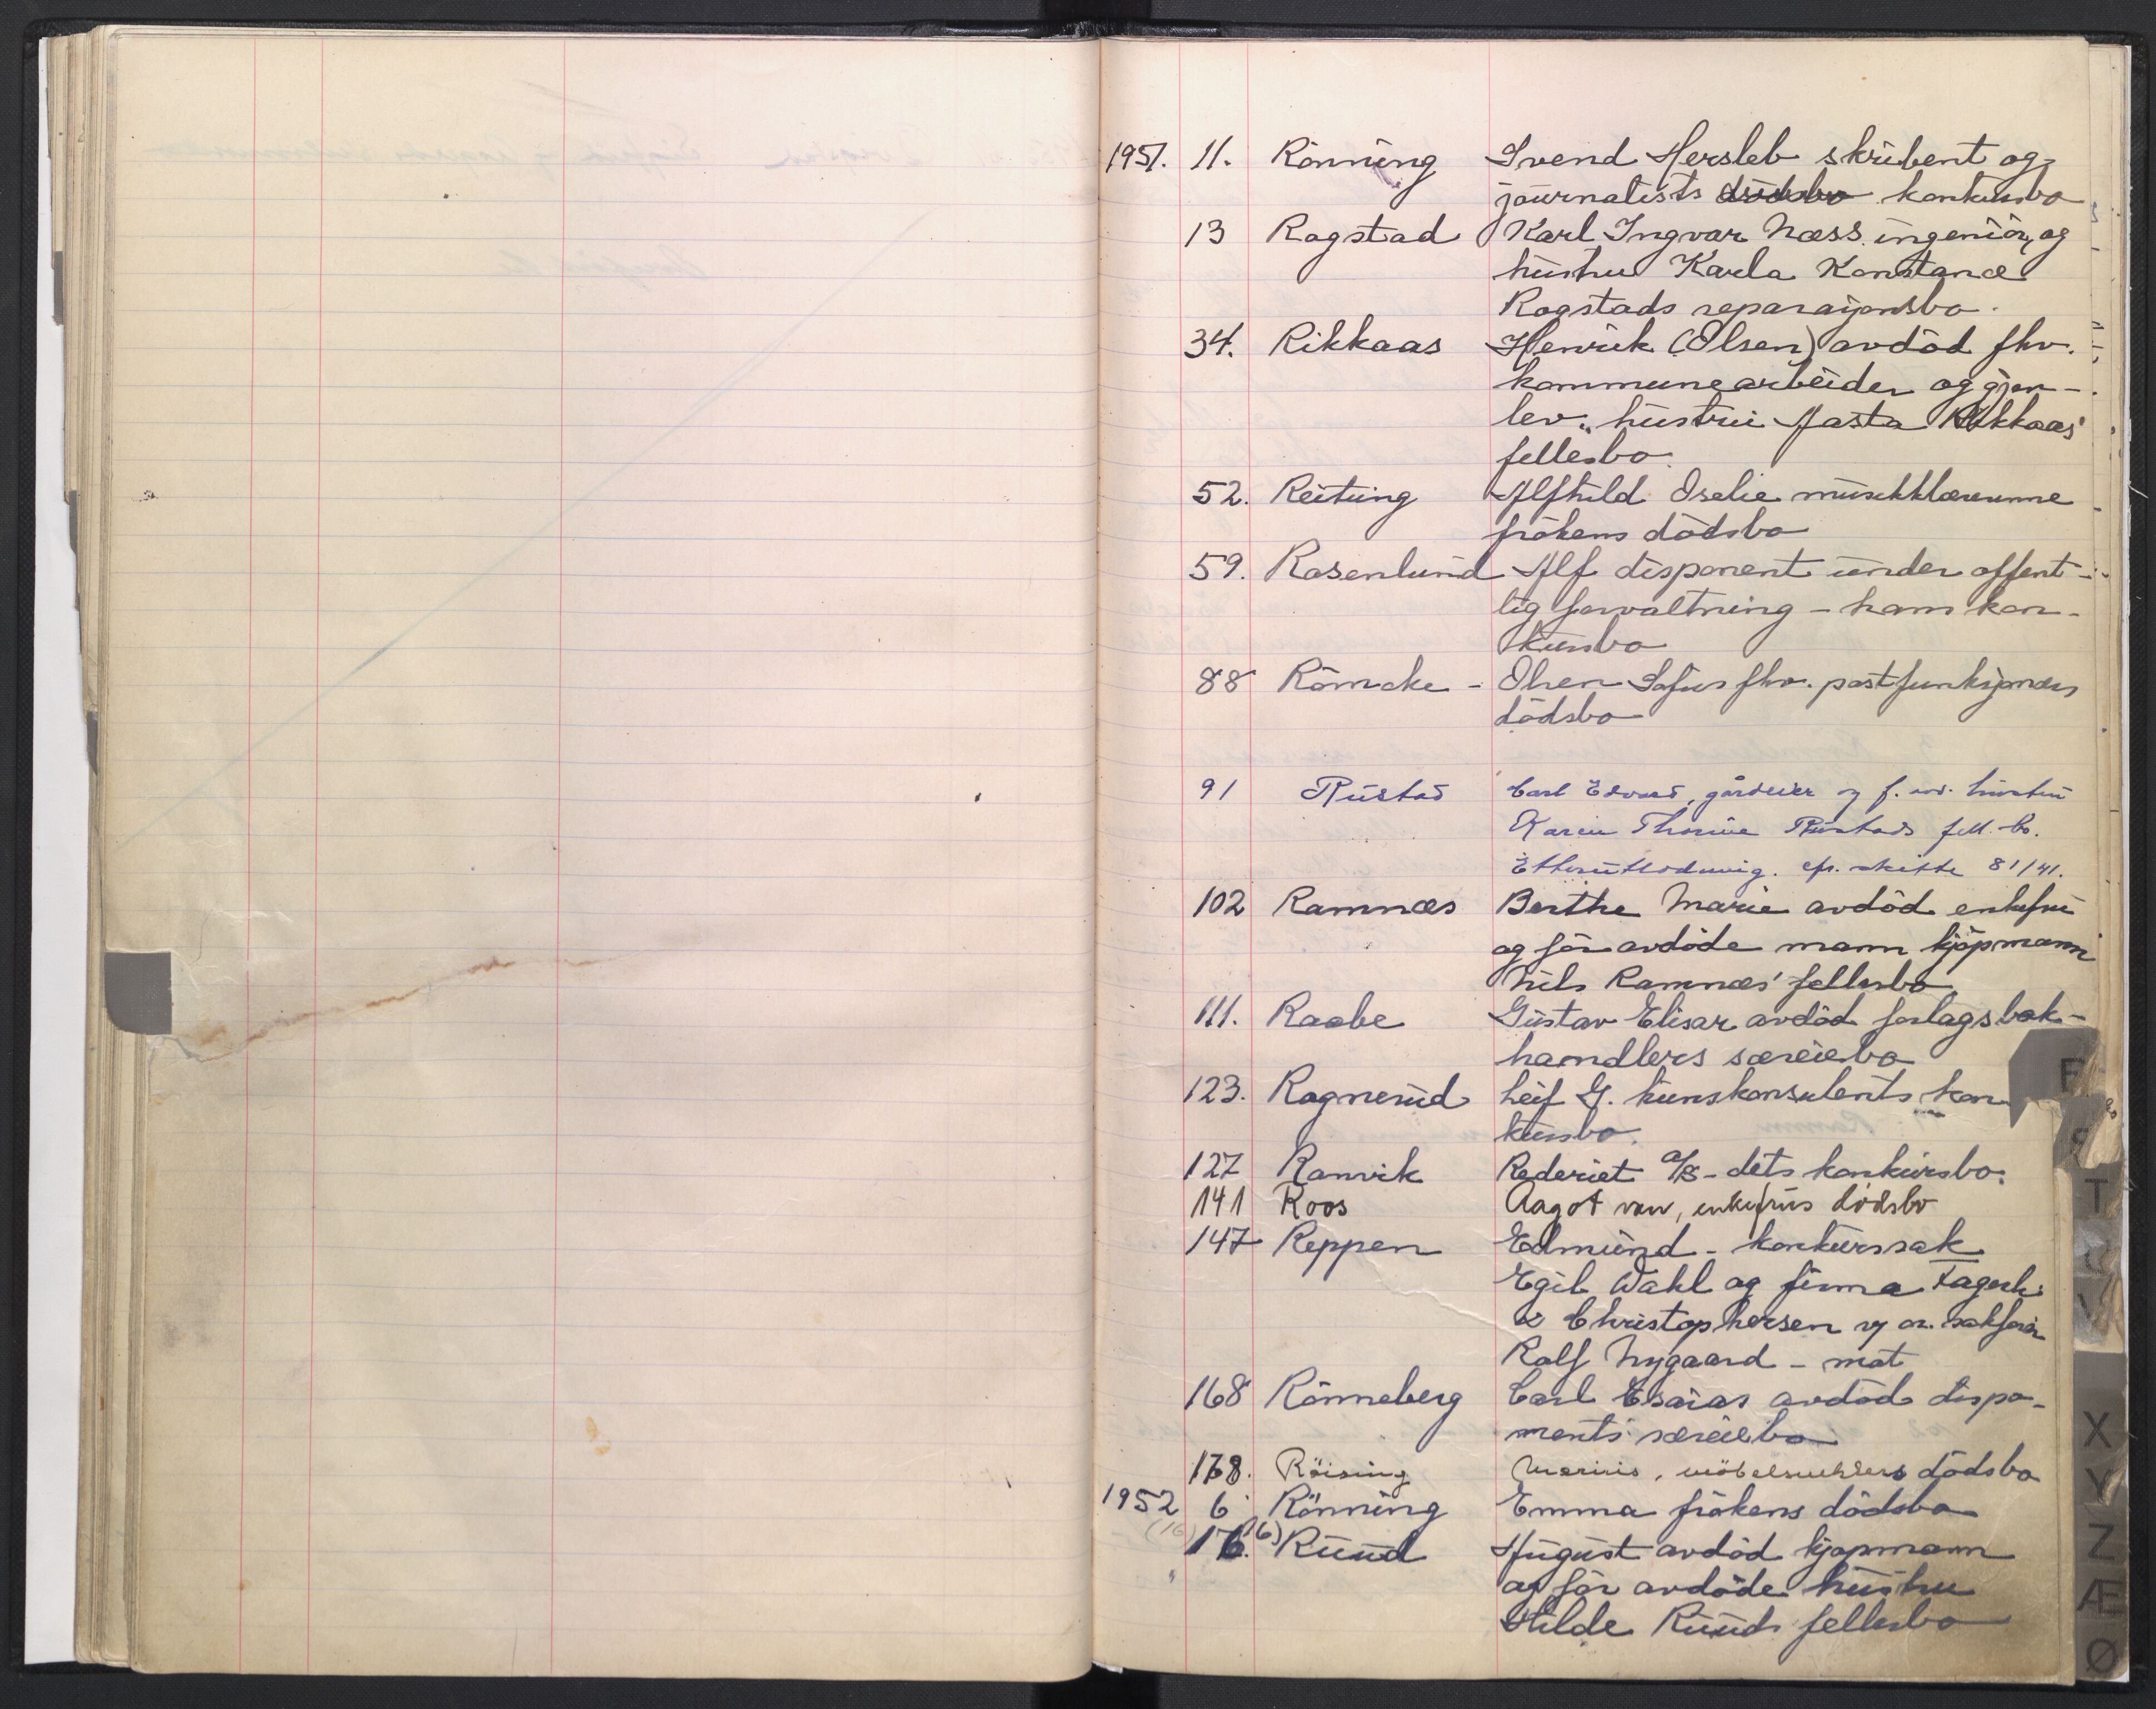 1951. 11. Rönning Svend Hersleb skribent og
journalists dödsbo konkursbo
13 Rogstad Karl Ingvar Næss ingeniör og
hustru Karla Konstance
Rogstads reparasjonsbo.
34. Rikkaas Henrik (Olsen) avdöd fhv.
kommunearbeider og gjen-
lev. hustru Aasta Rikkaas'
fellesbo.
52. Reitung Alfhild Oselie musikklærerinne
frökens dödsbo
59. Rosenlund Alf disponent under offent-
lig forvaltning - hans kon-
kursbo
88 Römcke - Olsen Sofus fhv. postfunksjonærs
dödsbo
91 Rustad Carl Edvard, gårdeier og f. avd. hustru
Karen Thorine Rustads fell.bo.
Etterutlodning. cfr. skifte 81/41.
102 Ramnæs Berthe Marie avdöd enkefru
og för avdöde mann kjöpmann
Nils Ramnæs' fellesbo
111. Raabe Gustav Elisar avdöd forlagsbok-
handlers særeiebo
123. Rognerud Leif G. kunskonsulents kon
kursbo.
127 Ranvik Rederiet a/s - dets konkursbo.
141 Roos Aagot von, enkefrus dödsbo
147 Reppen Edmund - konkurssak
Egil Wahl og firma Fagerli
& Christophersen v/ o.r. sakförer
Rolf Nygaard - mot
168 Rönneberg Carl Esaias avdöd dispo-
nents særeiebo
178. Röising møbelsnekkers dödsbo
1952 6 Rönning Emma frökens dödsbo
(16) 16. 16) Ruud August avdöd kjöpmann
og för avdöde hustru
Hilde Ruuds fellesbo
R
S
T
U
V
X
Y
Z
Æ
Ø